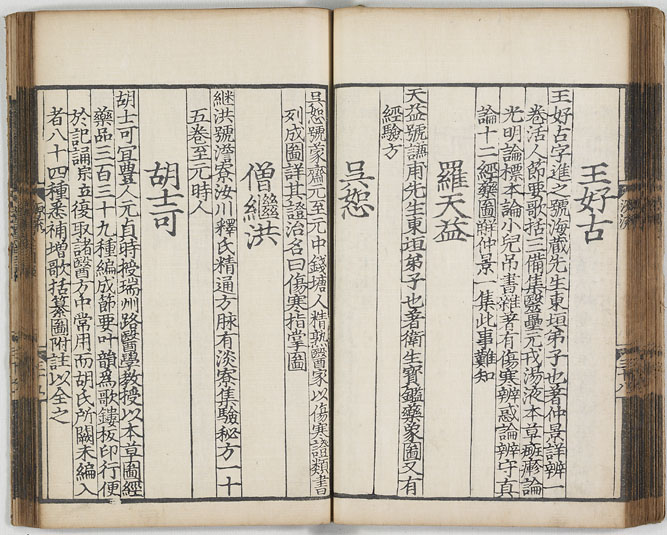 王好古
王好古字進之號海藏先生東垣弟子也著仲景詳辨一
卷活人節要歌括三備集醫壘元戎湯液本草斑疹論
光明論標本論小兒吊書雜著有傷寒辨惑論辨守真
論十二經藥圖解仲景一集此事難知
羅天益
天益號謙甫先生東垣弟子也著衛生寶鑑藥象圖又有
經驗方
吳恕
吳恕號蒙齋元至元中錢塘人精熟醫家以傷寒證類書
列成圖詳其證治名曰傷寒指掌圖
僧繼洪
継洪號澹寮汝川釋氏精通方脉有淡寮集驗秘方一十
五卷至元時人
胡士可
胡士可宜豐人元貞時授瑞州路醫學教授以本草圖經
藥品三百三十九種編成節要叶韻爲歌鏤板印行便
於記誦宗立復取諸醫方中常用而胡氏所闕未編入
者八十四種悉補增歌括纂圖附註以全之